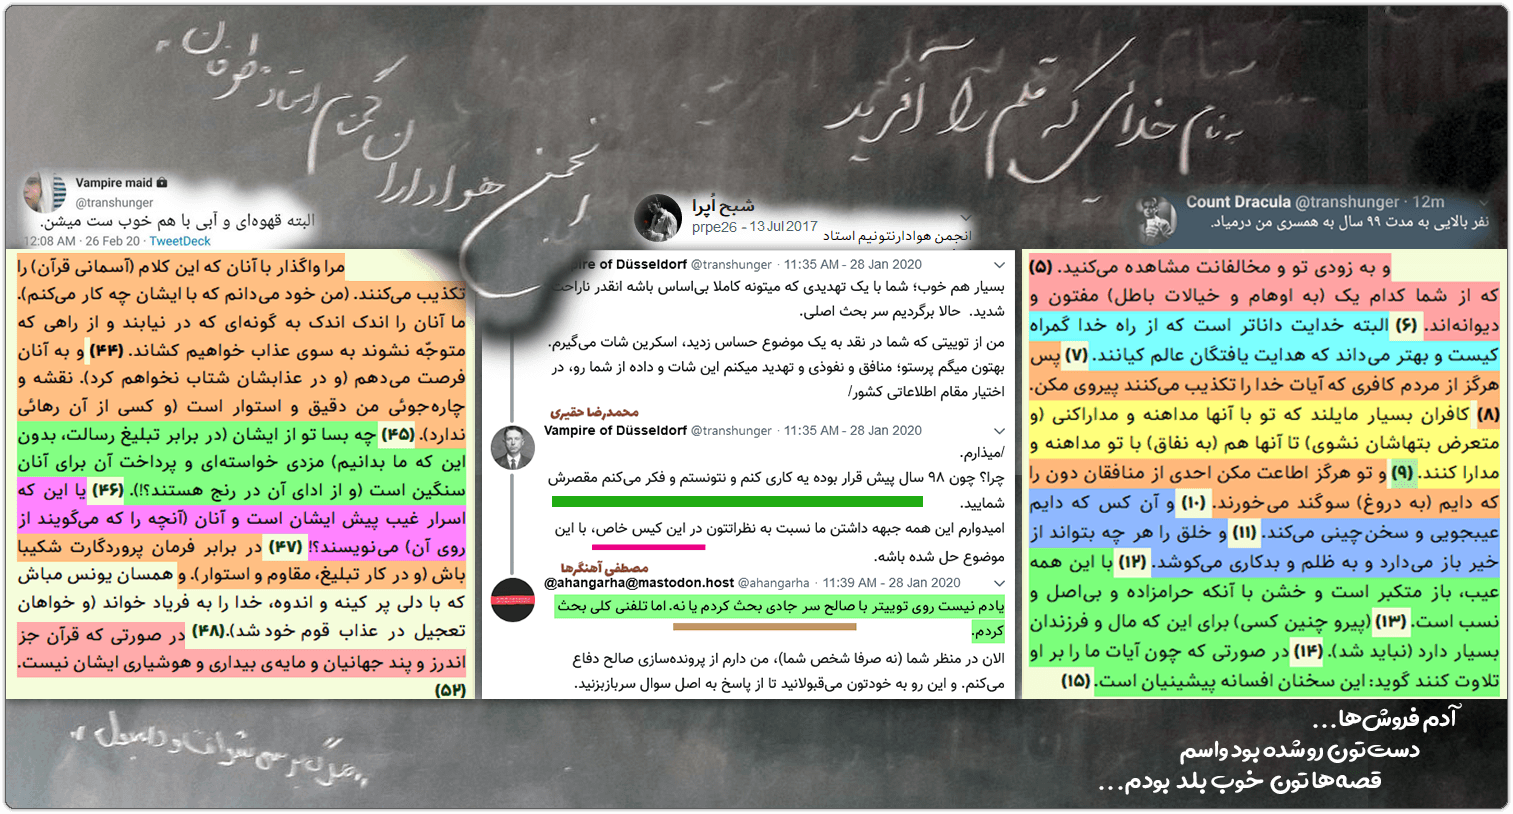 به نام خدایی که قلم را آفرید
انجمن هواداران گمنام استاد طوفان
Vampire maid
@transhunger
البته قهوه‌ای و آبی با هم خوب ست میشن.
12:08 AM · 26 Feb 20 · TweetDeck
شبح اُپرا
prpe26 - 13 Jul 2017
انجمن هوادارنتونیم استاد
Count Dracula @transhunger · 12m
نفر بالایی به مدت ۹۹ سال به همسری من درمیاد.
و به زودی تو و مخالفانت مشاهده می‌کنید. (۵)
که از شما کدام یک (به اوهام و خیالات باطل) مفتون و
دیوانه‌اند. (۶) البته خدایت داناتر است که از راه خدا گمراه
کیست و بهتر می‌داند که هدایت یافتگان عالم کیانند. (۷) پس
هرگز از مردم کافری که آیات خدا را تکذیب می‌کنند پیروی مکن.
(۸) کافران بسیار مایلند که تو با آنها مداهنه و مداراکنی (و
متعرض بتهاشان نشوی) تا آنها هم (به نفاق) با تو مداهنه و
مدارا کنند. (۹) و تو هرگز اطاعت مکن احدی از منافقان دون را
که دایم (به دروغ) سوگند می‌خورند. (۱۰) و آن کس که دایم
عیبجویی و سخن‌چینی می‌کند. (۱۱) و خلق را هر چه بتواند از
خیر باز می‌دارد و به ظلم و بدکاری می‌کوشد. (۱۲) با این همه
عیب، باز متکبر است و خشن با آنکه حرامزاده و بی‌اصل و
نسب است. (۱۳) (پیرو چنین کسی) برای این که مال و فرزندان
بسیار دارد (نباید شد). (۱۴) در صورتی که چون آیات ما را بر او
تلاوت کنند گوید: این سخنان افسانه پیشینیان است. (۱۵)
pire of Düsseldorf @transhunger · 11:35 AM - 28 Jan 2020
بسیار هم خوب؛ شما با یک تهدیدی که میتونه کاملا بی‌اساس باشه انقدر ناراحت
شدید. حالا برگردیم سر بحث اصلی.
من از توییتی که شما در نقد به یک موضوع حساس زدید، اسکرین شات می‌گیرم.
بهتون میگم پرستو؛ منافق و نفوذی و تهدید میکنم این شات و داده از شما رو، در
اختیار مقام اطلاعاتی کشور/
محمدرضا حقیری
Vampire of Düsseldorf @transhunger · 11:35 AM - 28 Jan 2020
/میذارم.
چرا؟ چون ۹۸ سال پیش قرار بوده یه کاری کنم و نتونستم و فکر می‌کنم مقصرش
شمایید.
امیدوارم این همه جبهه داشتن ما نسبت به نظراتتون در این کیس خاص، با این
موضوع حل شده باشه.
مصطفی آهنگرها
@ahangarha@mastodon.host @ahangarha · 11:39 AM - 28 Jan 2020
یادم نیست روی توییتر با صالح سر جادی بحث کردم یا نه. اما تلفنی کلی بحث
کردم.
الان در منظر شما (نه صرفا شخص شما)، من دارم از پرونده‌سازی صالح دفاع
می‌کنم. و این رو به خودتون می‌قبولانید تا از پاسخ به اصل سوال سربازبزنید.
مرا واگذار با آنان که این کلام (آسمانی قرآن) را
تکذیب می‌کنند. (من خود می‌دانم که با ایشان چه کار می‌کنم).
ما آنان را اندک اندک به گونه‌ای که در نیابند و از راهی که
متوجّه نشوند به سوی عذاب خواهیم کشاند. (۴۴) و به آنان
فرصت می‌دهم (و در عذابشان شتاب نخواهم کرد). نقشه و
چاره‌جوئی من دقیق و استوار است (و کسی از آن رهائی
ندارد). (۴۵) چه بسا تو از ایشان (در برابر تبلیغ رسالت، بدون
این که ما بدانیم) مزدی خواسته‌ای و پرداخت آن برای آنان
سنگین است (و از ادای آن در رنج هستند؟!). (۴۶) یا این که
اسرار غیب پیش ایشان است و آنان (آنچه را که می‌گویند از
روی آن) می‌نویسند؟! (۴۷) در برابر فرمان پروردگارت شکیبا
باش (و در کار تبلیغ، مقاوم و استوار). و همسان یونس مباش
که با دلی پر کینه و اندوه، خدا را به فریاد خواند (و خواهان
تعجیل در عذاب قوم خود شد).(۴۸) در صورتی که قرآن جز
اندرز و پند جهانیان و مایه‌ی بیداری و هوشیاری ایشان نیست.
(۵۲)
آدم فروش‌ها...
دست‌تون رو شده بود واسم
قصه‌هاتون خوب بلد بودم...